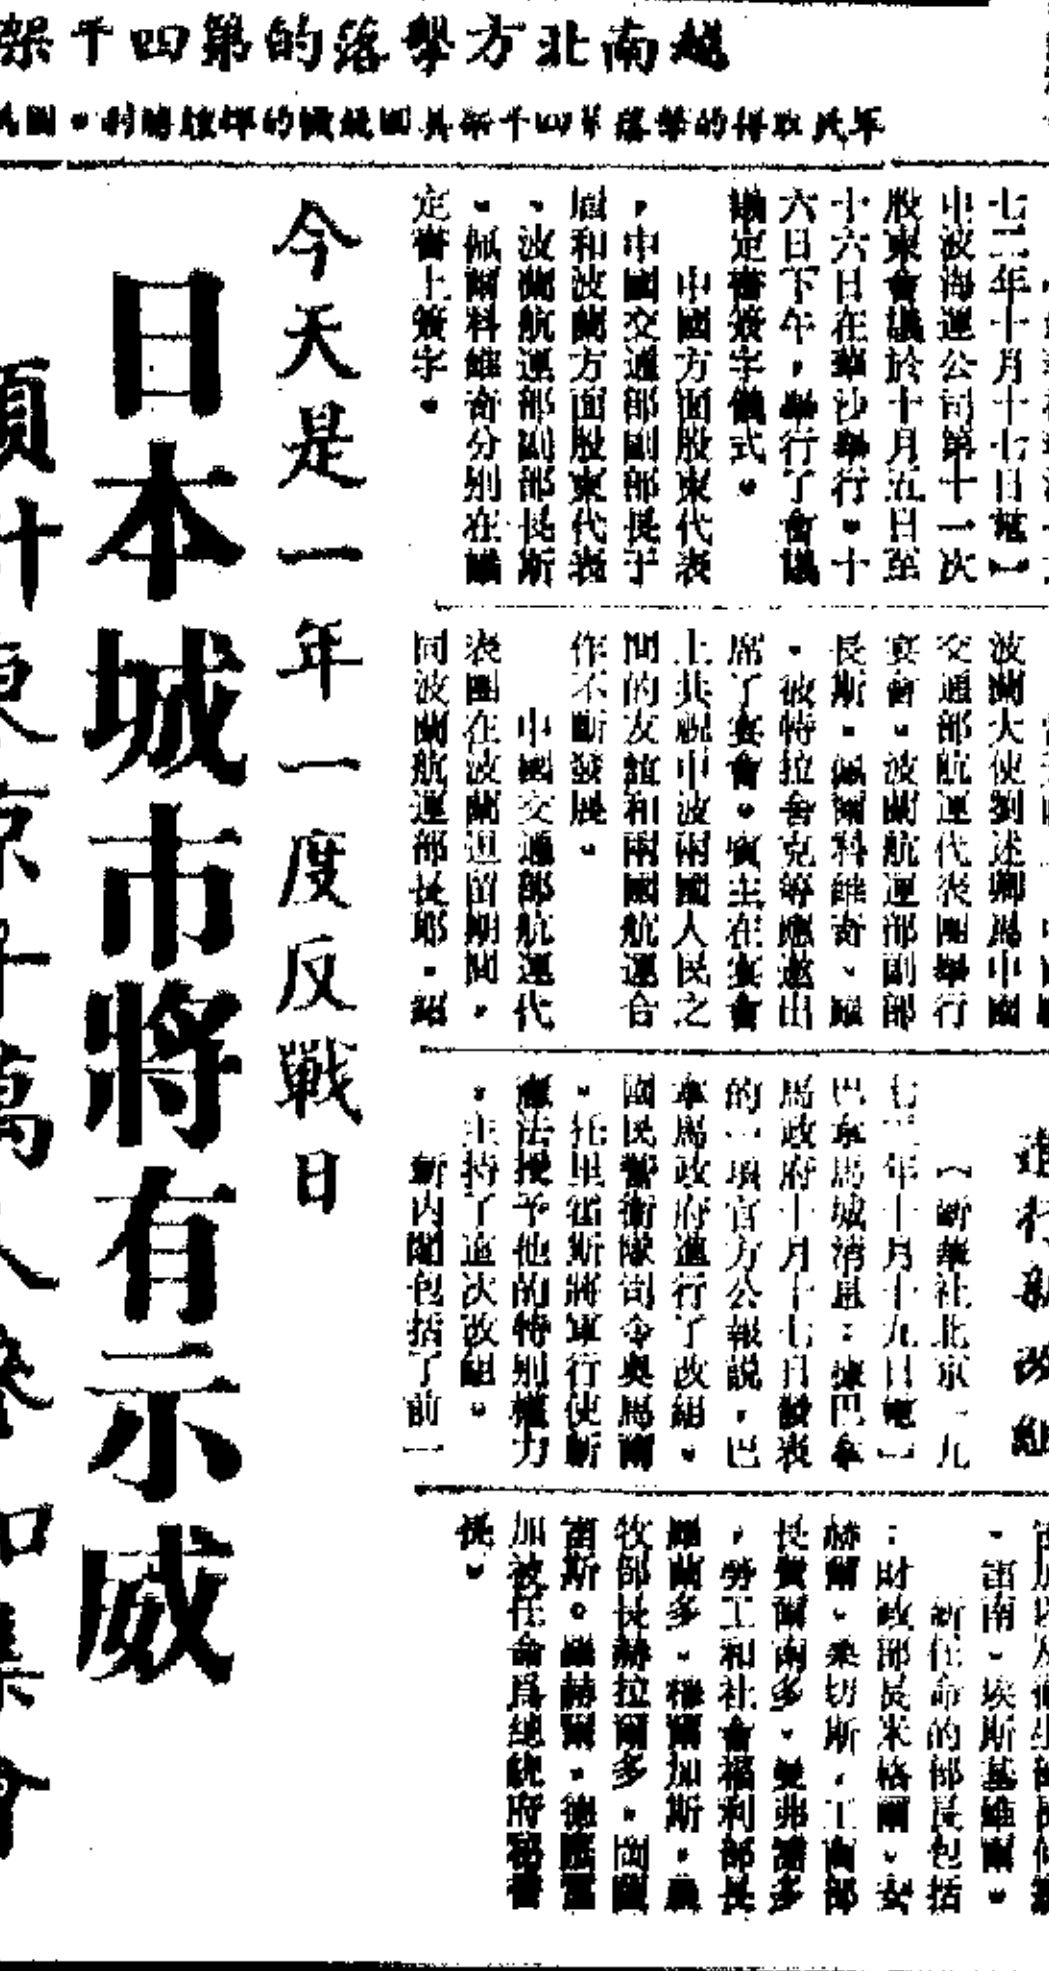 越南北方擊落的第四千架
軍民取得的擊落第四千架美國飛機的輝煌勝利。圖爲
七二年十月十七日電】
中波海運公司第十一次
股東會議於十月五日至
十六日在華沙舉行。十
六日下午，舉行了會議
議定書簽字儀式。
中國方面股東代表
，中國交通部副部長于
眉和波蘭方面股東代表
、波蘭航運部副部長斯
・佩爾科維奇分別在議
定書上簽字。
波蘭大使劉述卿爲中國
交通部航運代表團舉行
宴會。波蘭航運部副部
長斯・佩爾科維奇、
・彼特拉舍克等應邀出
席了宴會。賓主在宴會
上共祝中波兩國人民之
間的友誼和兩國航運合
作不斷發展。
中國交通部航運代
表團在波蘭逗留期間，
同波蘭航運部長耶・紹
進行新改組
（新華社北京一九
七二年十月十九日電】
巴拿馬城消息：據巴拿
馬政府十月十七日發表
的一項官方公報説，巴
拿馬政府進行了改組。
國民警衛隊司令奧馬爾
・托里霍斯將軍行使新
憲法授予他的特別權力
，主持了這次改組。
新内閣包括了前一
・雷南・埃斯基維爾。
新任命的部長包括
：財政部長米格爾・安
赫爾・桑切斯，工商部
長費爾南多・曼弗雷多
，勞工和社會福利部長
羅蘭多・穆爾加斯，農
牧部長赫拉爾多・岡薩
雷斯。羅赫爾・德
加被任命爲總統府秘書
長。
今天是一年一度反戰日
日本城市將有示威
預計東京千萬人參加集會